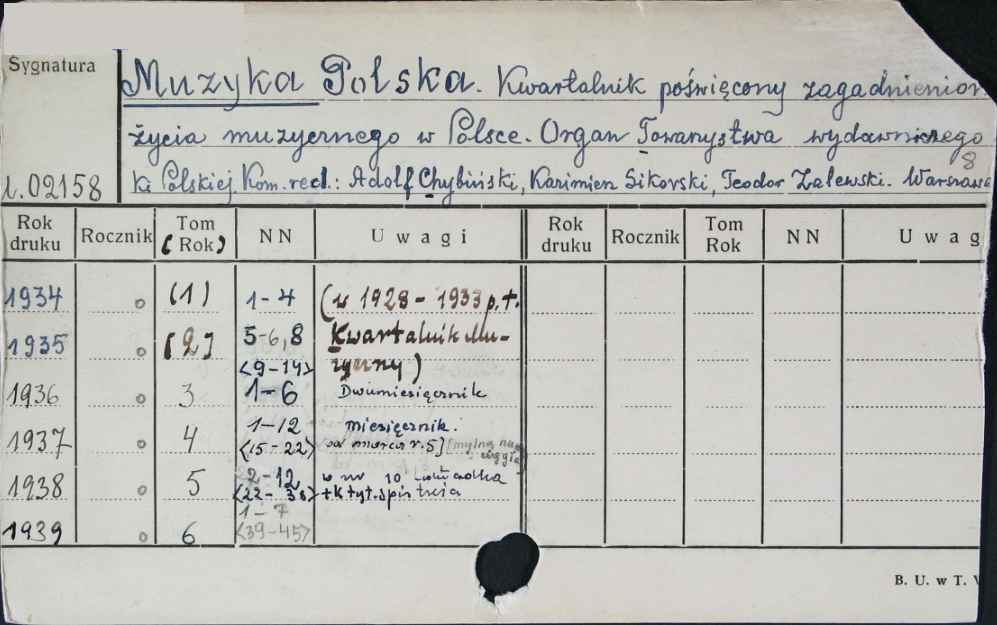 Sygnatura
Muzyka Polska. Kwartalnik poświęcony zagadnieniom
życia muzycznego w Polsce. Organ Towarzystwa wydawniczego
8
02158 ki Polskiej. Kom. red.: Adolf Chybiński, Kazimierz Sikorski, Teodor Zalewski. Warszawa
Rok druku Rocznik Tom (Rok) NN Uwagi Rok druku Rocznik Tom Rok NN Uwag
1934 o (1) 1-4 (w 1928-1933 p.t.
1935 o [2] 5-6,8 Kwartalnik Mu-
<9-14> zyczny)
1936 o 3 1-6 Dwumiesięcznik
1937 o 4 1-12 miesięcznik.
<15-22> od marca r.5] [mylna
1938 o 5 2-12 w nr 10
<22-38> +k tyt. spis treści
1-7
1939 o 6 <39-45>
B. U. w T.